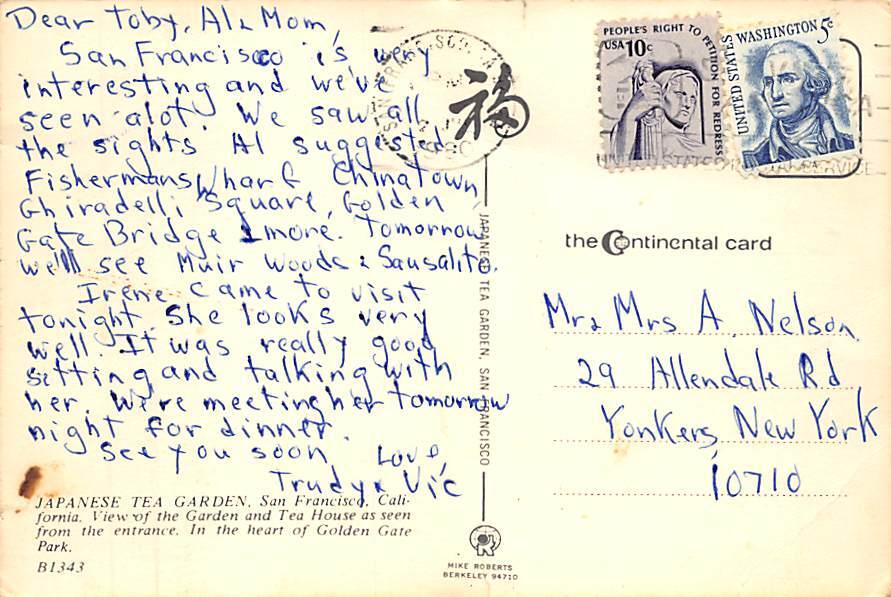 Dear Toby, Al & Mom,
San Francisco is very
interesting and we've
seen alot. We saw all
the sights Al suggested
Fishermans Wharf Chinatown
Ghiradelli Square, Golden
Gate Bridge & more. Tomorrow
we'll see Muir Woods & Sausalito.
Irene came to visit
tonight. She looks very
well. It was really good
sitting and talking with
her. We're meeting her tomorrow
night for dinner.
See you soon
Love,
Trudy & Vic
JAPANESE TEA GARDEN, San Francisco, Cali-
fornia. View of the Garden and Tea House as seen
from the entrance. In the heart of Golden Gate
Park.
B1343
福
JAPANESE TEA GARDEN, SAN FRANCISCO
MIKE ROBERTS
BERKELEY 94710
PEOPLE'S RIGHT TO PETITION FOR REDRESS
USA 10c
UNITED STATES
WASHINGTON 5c
UNITED STATES POSTAL SERVICE
the Continental card
Mr & Mrs A. Nelson
29 Allendale Rd
Yonkers, New York
10710